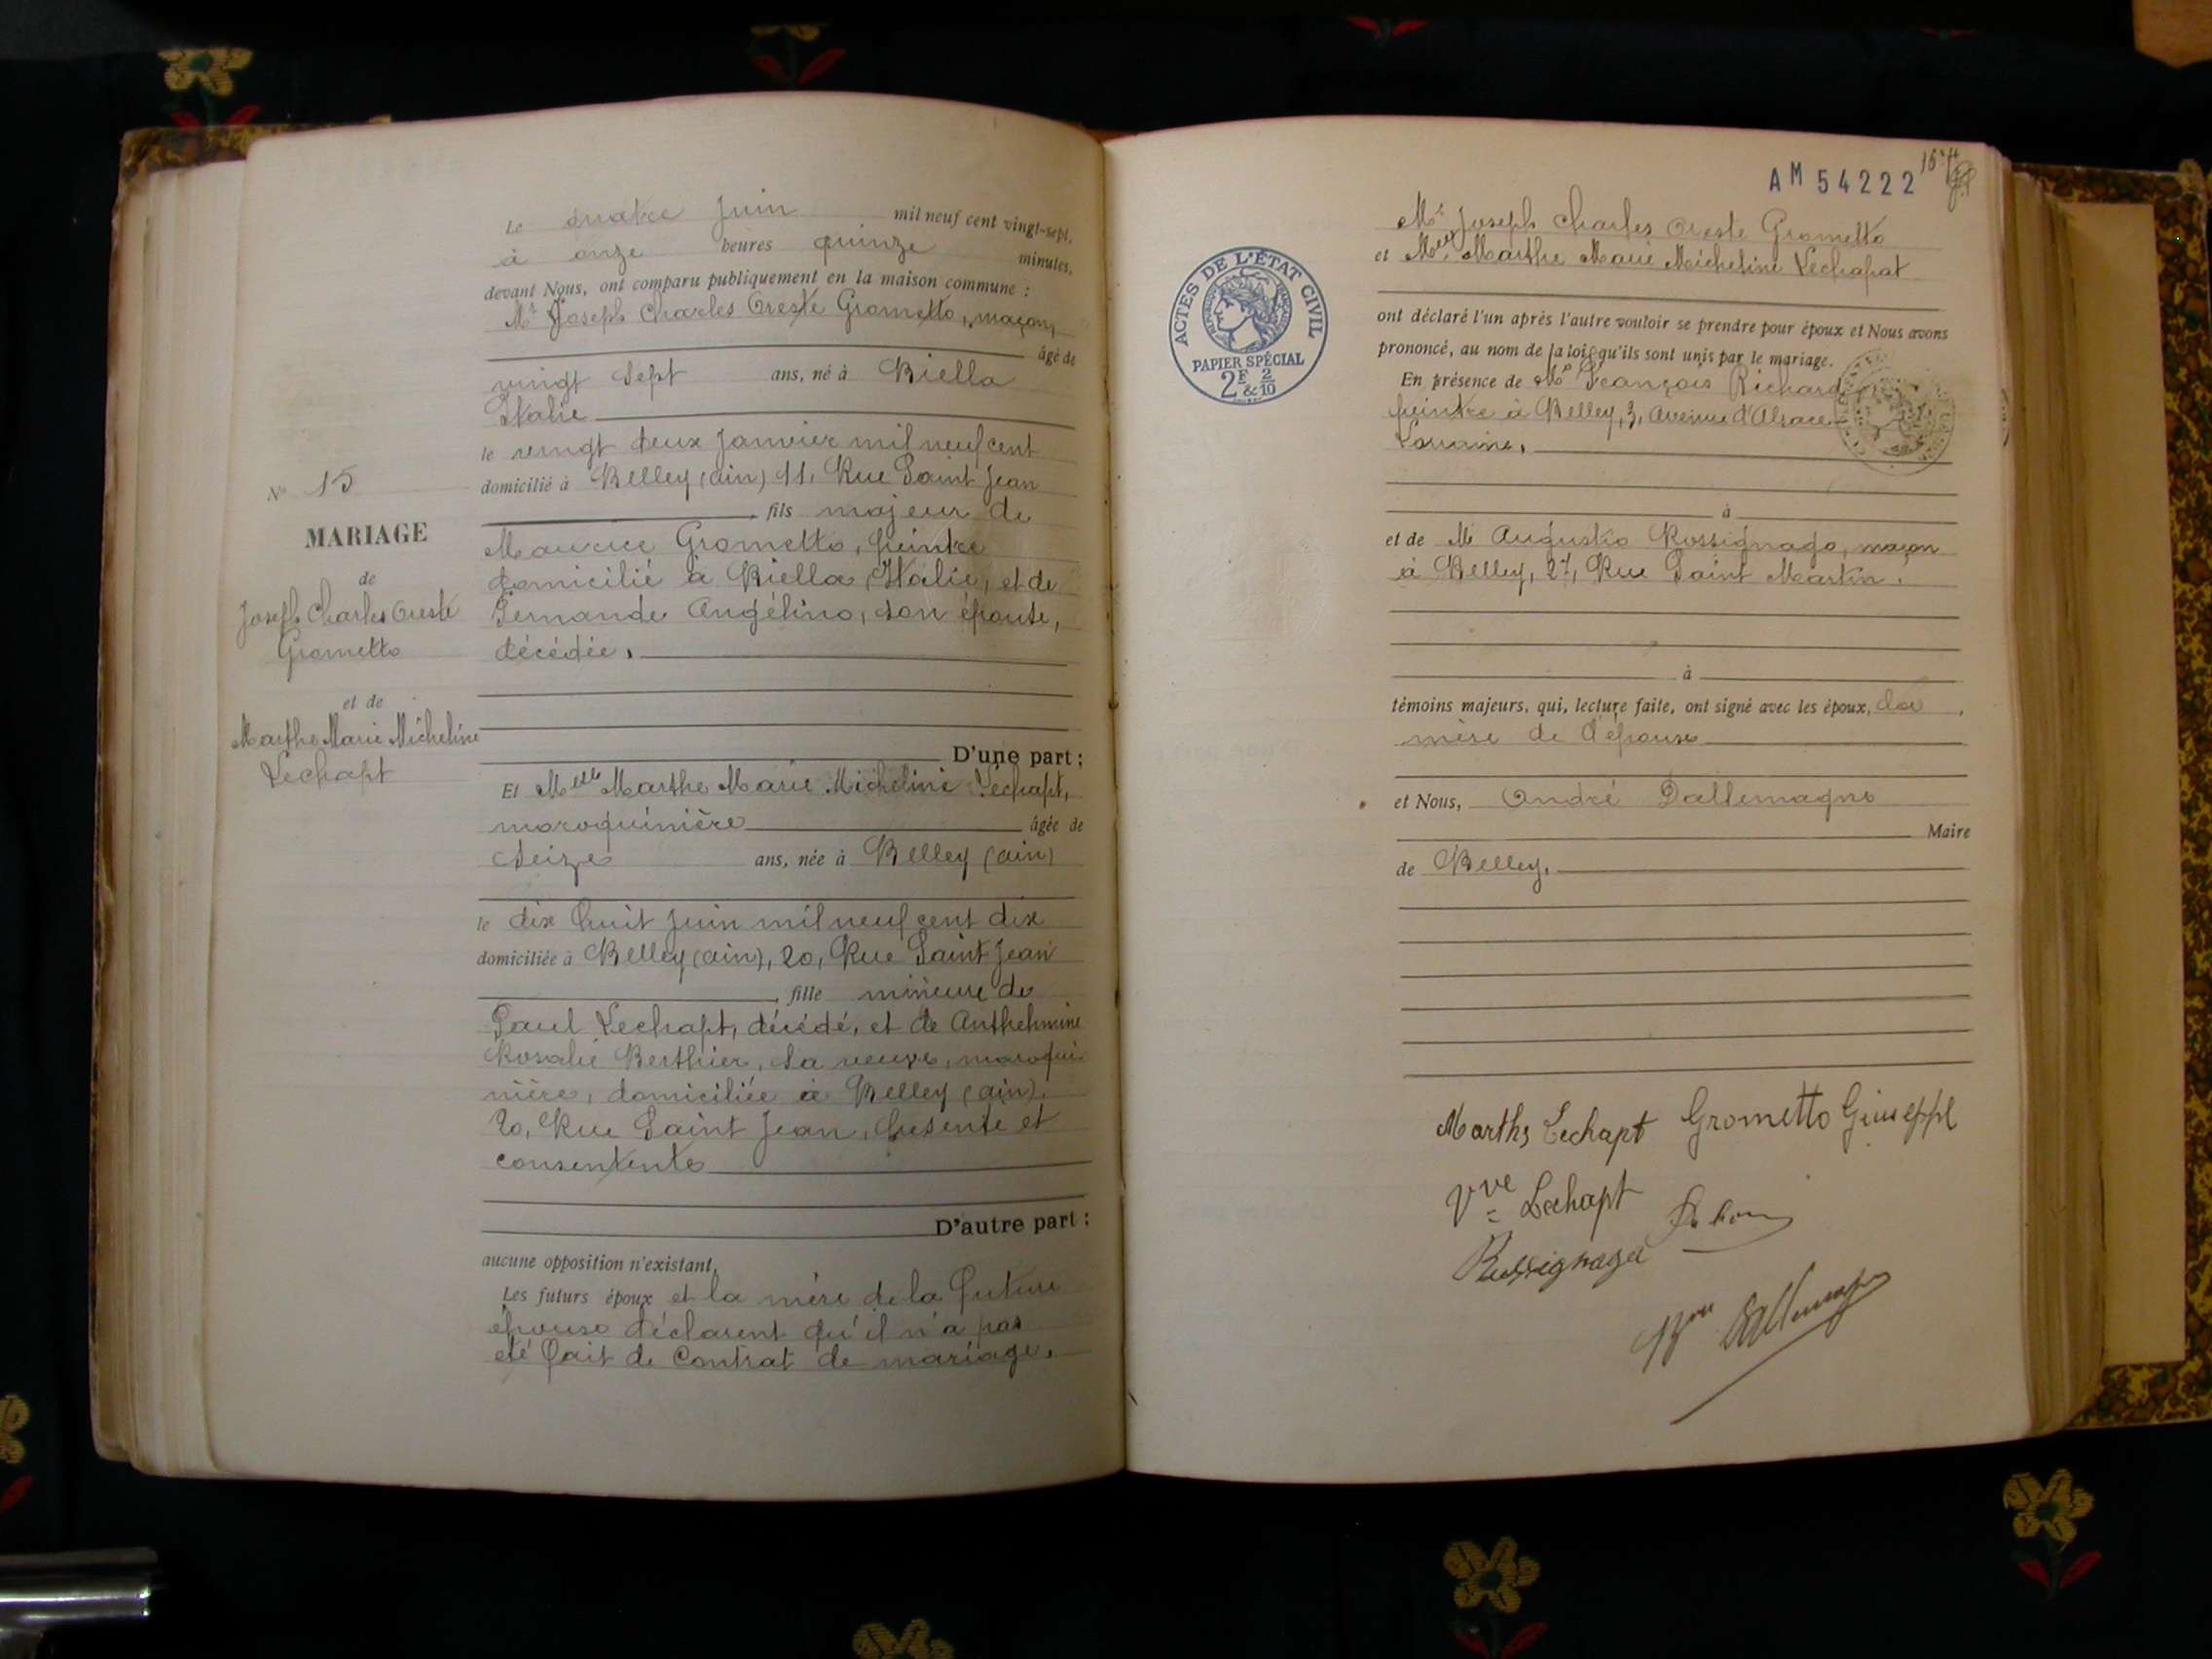 Le quatre Juin mil neuf cent vingt-sept,
à onze heures quinze minutes,
devant Nous, ont comparu publiquement en la maison commune :
Mr Joseph Charles Oreste Grometto, maçon,
âgé de
vingt sept ans, né à Biella
Italie
le vingt deux Janvier mil neuf cent
domicilié à Belley (Ain) 11, Rue Saint Jean
fils majeur de
Maurice Grometto, peintre
domicilié à Biella, Italie, et de
Fernande Angélino, son épouse,
décédée.
D'une part ;
No 15
MARIAGE
de
Joseph Charles Oreste
Grometto
et de
Marthe Marie Micheline
Lechapt
Et Melle Marthe Marie Micheline Lechapt,
maroquinière âgée de
seize ans, née à Belley (Ain)
le dix huit Juin mil neuf cent dix
domiciliée à Belley (Ain), 20, Rue Saint Jean
fille mineure de
Paul Lechapt, décédé, et de Anthelmine
Rosalie Berthier, sa veuve, maroqui-
nière, domiciliée à Belley (Ain),
20, Rue Saint Jean, présente et
consentente
D'autre part ;
aucune opposition n'existant,
Les futurs époux et la mère de la future
épouse déclarent qu'il n'a pas
été fait de Contrat de mariage.
AM 54222
Mr Joseph Charles Oreste Grometto
et Melle Marthe Marie Micheline Lechapat
ont déclaré l'un après l'autre vouloir se prendre pour époux et Nous avons
prononcé, au nom de la loi, qu'ils sont unis par le mariage.
En présence de Mr François Richard,
peintre à Belley, 3, Avenue d'Alsace-
Lorraine,
à
et de M Augusto Rossignago, maçon
à Belley, 21, Rue Saint Martin.
à
témoins majeurs, qui, lecture faite, ont signé avec les époux, la
mère de l'épouse
et Nous, André Dallemagne
Maire
de Belley.
ACTES DE L'ÉTAT CIVIL
RÉPUBLIQUE FRANÇAISE
PAPIER SPÉCIAL
2F & 2/10
Marthe Lechapt Grometto Giuseppe
Vve Lechapt
Rossignago
Bon Dallemagne